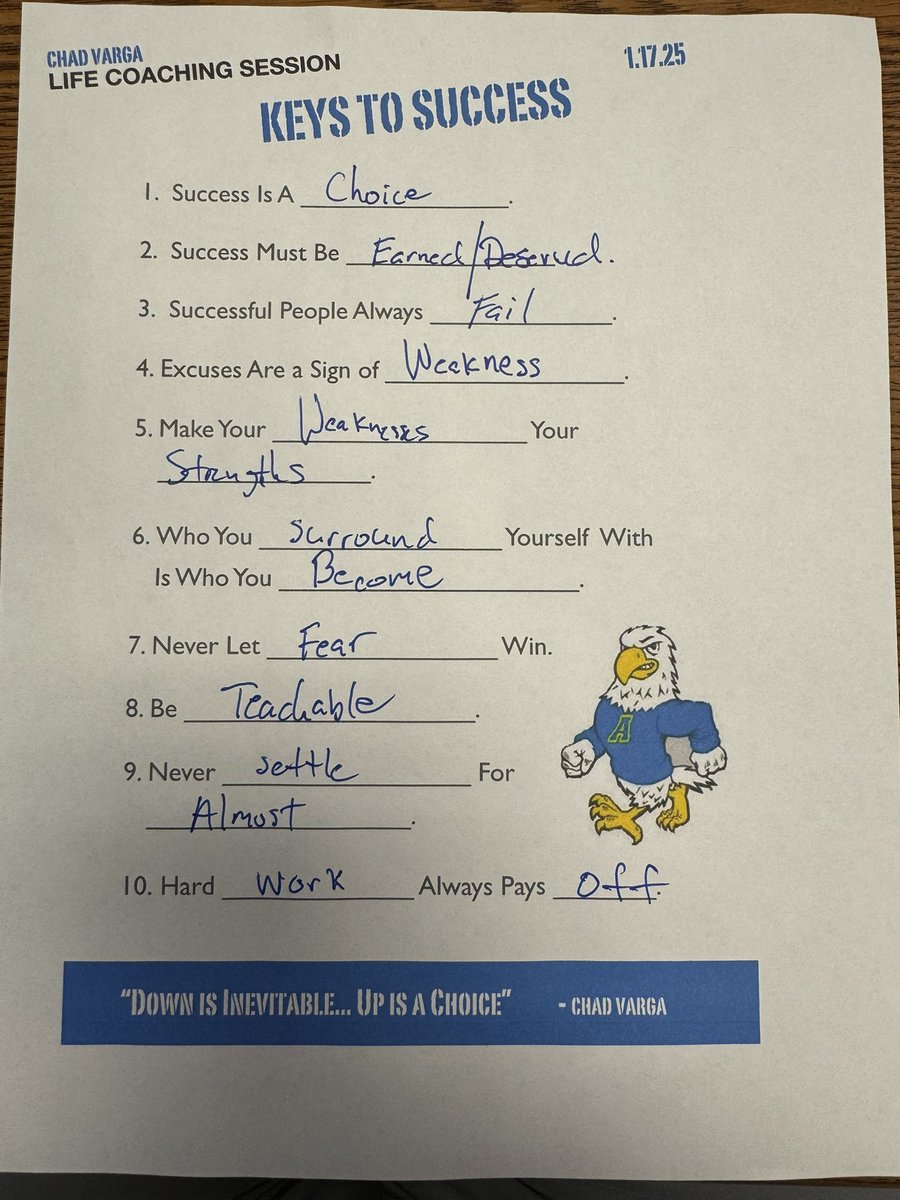 CHAD VARGA
LIFE COACHING SESSION
1.17.25
KEYS TO SUCCESS
1. Success Is A Choice.
2. Success Must Be Earned/Deserved.
3. Successful People Always Fail.
4. Excuses Are a Sign of Weakness.
5. Make Your Weaknesses Your
Strengths.
6. Who You Surround Yourself With
Is Who You Become.
7. Never Let Fear Win.
8. Be Teachable.
9. Never Settle For
Almost.
10. Hard Work Always Pays Off.
A
"DOWN IS INEVITABLE... UP IS A CHOICE" - CHAD VARGA